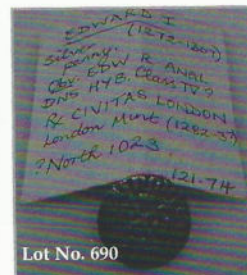 EDWARD I
(1272-1307)
Silver
penny.
Obv. EDW R ANGL
DNS HYB. Class IV?
Rx CIVITAS LONDON
London Mint (1282-9)
? North 1023.
121-74
Lot No. 690